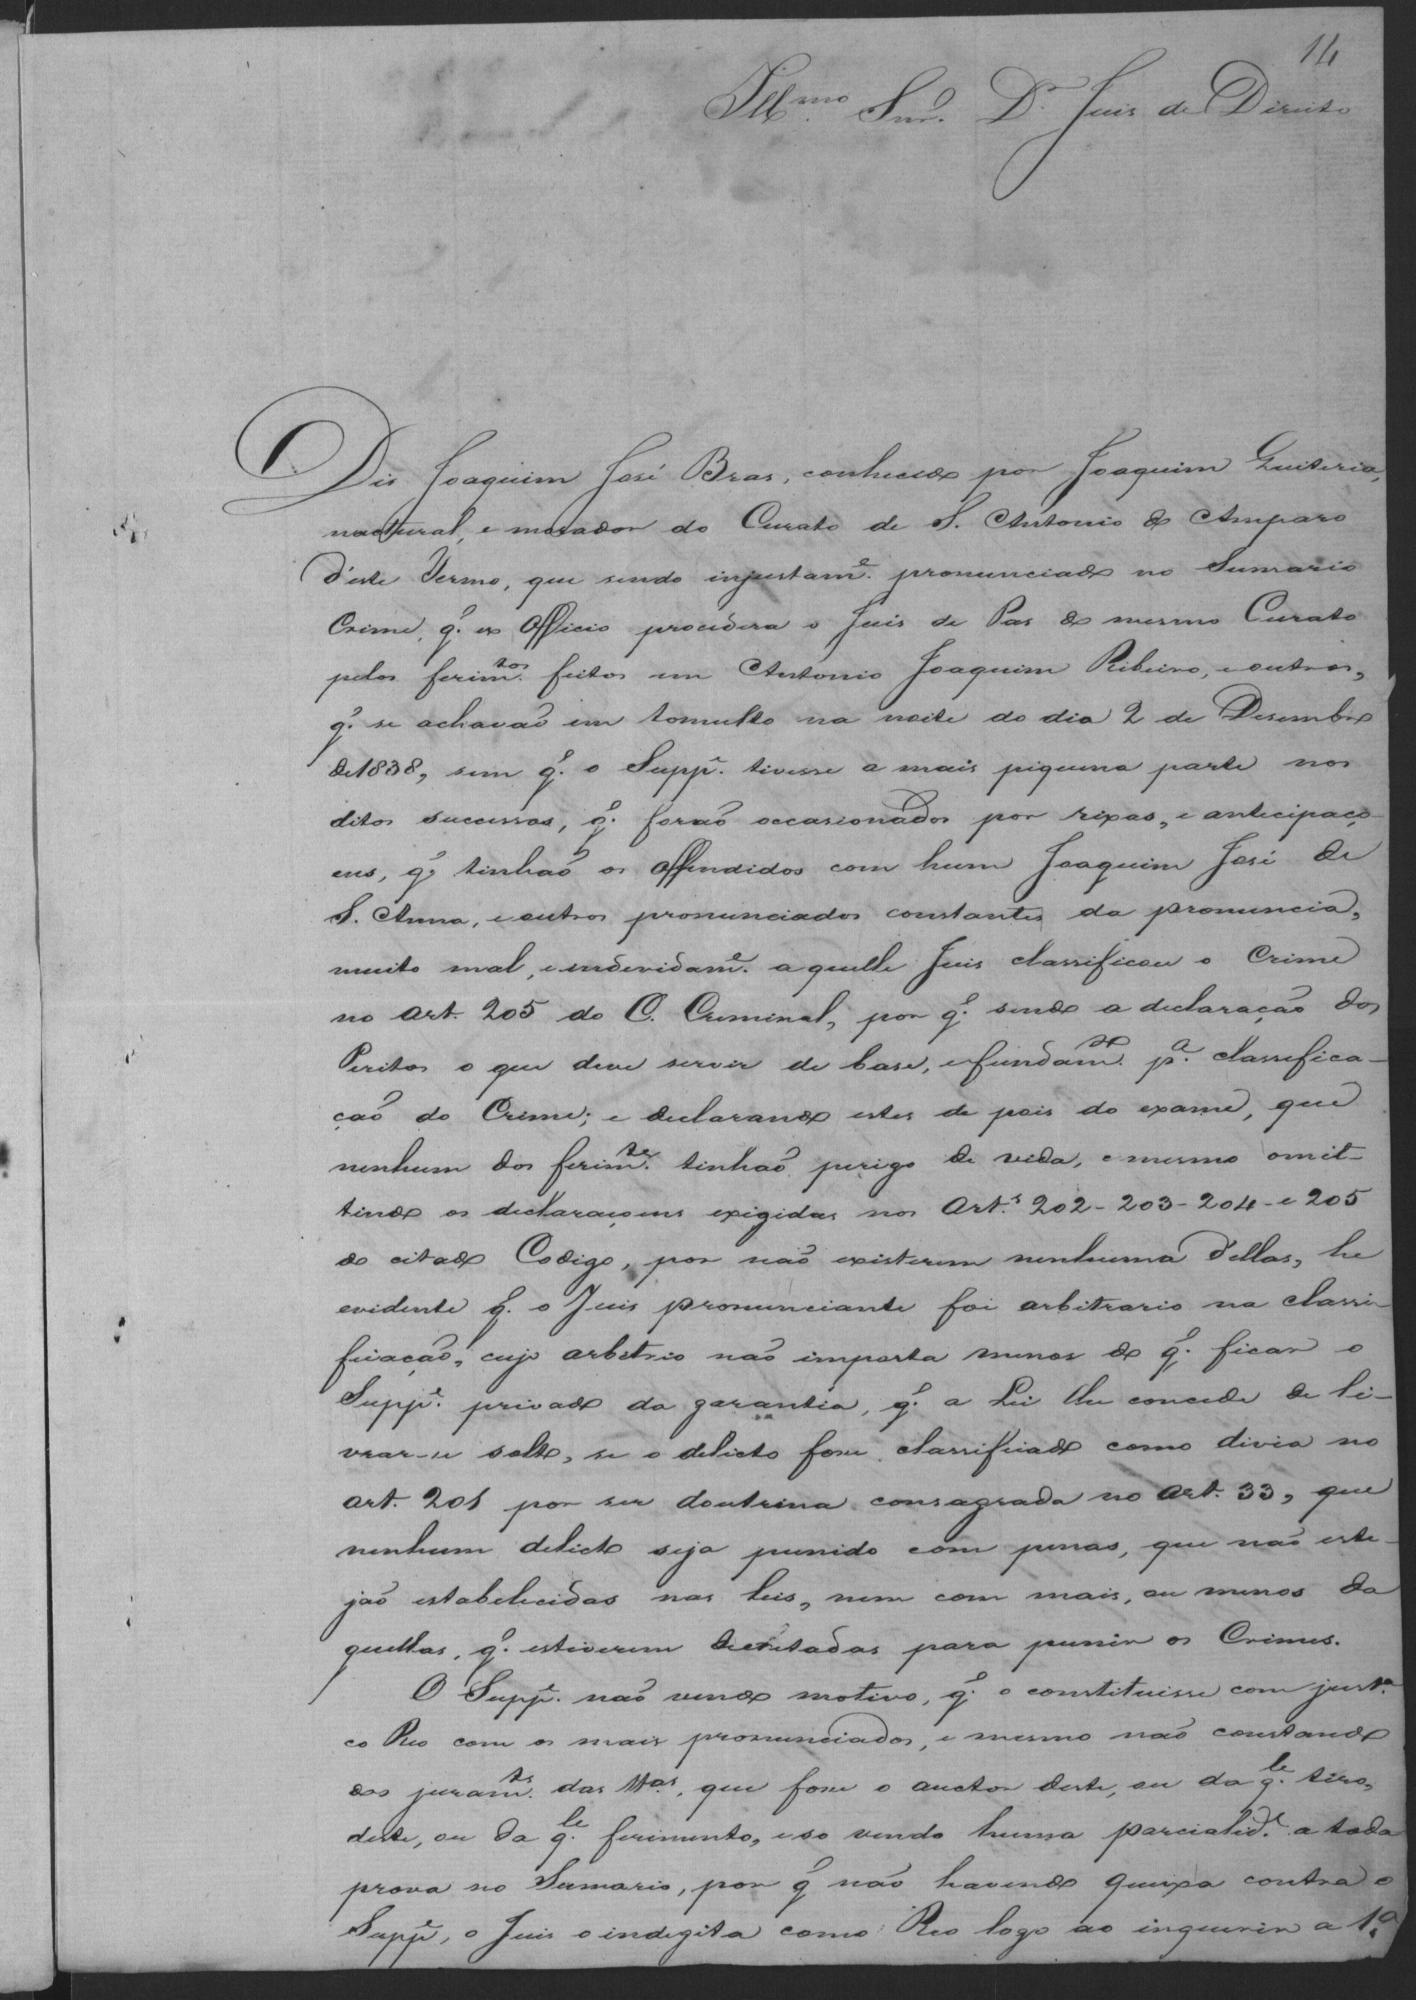 14
Illmo. Snr. Dr. Juis de Direito
Dis Joaquim José Bras, conhecido por Joaquim Quiteria,
nactural, e morador do Curato de S. Antonio do Amparo
d'este Termo, que sendo injustame. pronunciado no Sumario
Crime, q. ex Officio procedera o Juis de Pas do mesmo Curato
pelos ferimtos. feitos em Antonio Joaquim Ribeiro, e outros,
q. se achavaõ em tomulto na noite do dia 2 de Desembro
de 1838, sem q. o Suppe. tivesse a mais piquena parte nos
ditos successos, q. foraõ occasionados por rixas, e antecipaço-
ens, q. tinhaõ os offendidos com hum Joaquim José de
S. Anna, e outros pronunciados constantes da pronuncia,
muito mal, e indevidame. aquelle Juis classificou o Crime
no art. 205 do C. Creminal, por q. sendo a declaração dos
Peritos o que deve servir de base, e fundamto. pa. classefica-
çaõ do Crime; e declarando estes de pois do exame, que
nenhum dos ferimtos. tinhaõ perigo de vida, e mesmo omit-
tindo as declaraçoens exigidas nos Art.s 202-203-204-e 205
do citado Codigo, por naõ existerem nenhuma d'ellas, he
evidente q. o Juis pronunciante foi arbitrario na classi-
ficaçaõ, cujo arbitrio naõ importa menos do q. ficar o
Suppe. privado da garantia, q. a Lei lhe concede de li-
vrar-se solto, se o delicto fose classificado como divia no
art. 201 por ser doutrina consagrada no Art. 33, que
nenhum delicto seja punido com penas, que naõ este-
jaõ estabelecidas nas leis, nem com mais, ou menos da
quellas, q. estiverem decretadas para punir os Crimes.
O Suppe. naõ vendo motivo, q. o constituisse com justa.
co Reo com os mais pronunciados, e mesmo naõ constando
dos juramtos. das ttas., que fose o auctor deste, ou da qle. tiro,
deste, ou da qle. ferimento, e so vendo huma parcialide. a toda
prova no Sumario, por q. naõ havendo queixa contra o
Suppe., o Juis o indigita como Reo logo ao inquerir a 1.a